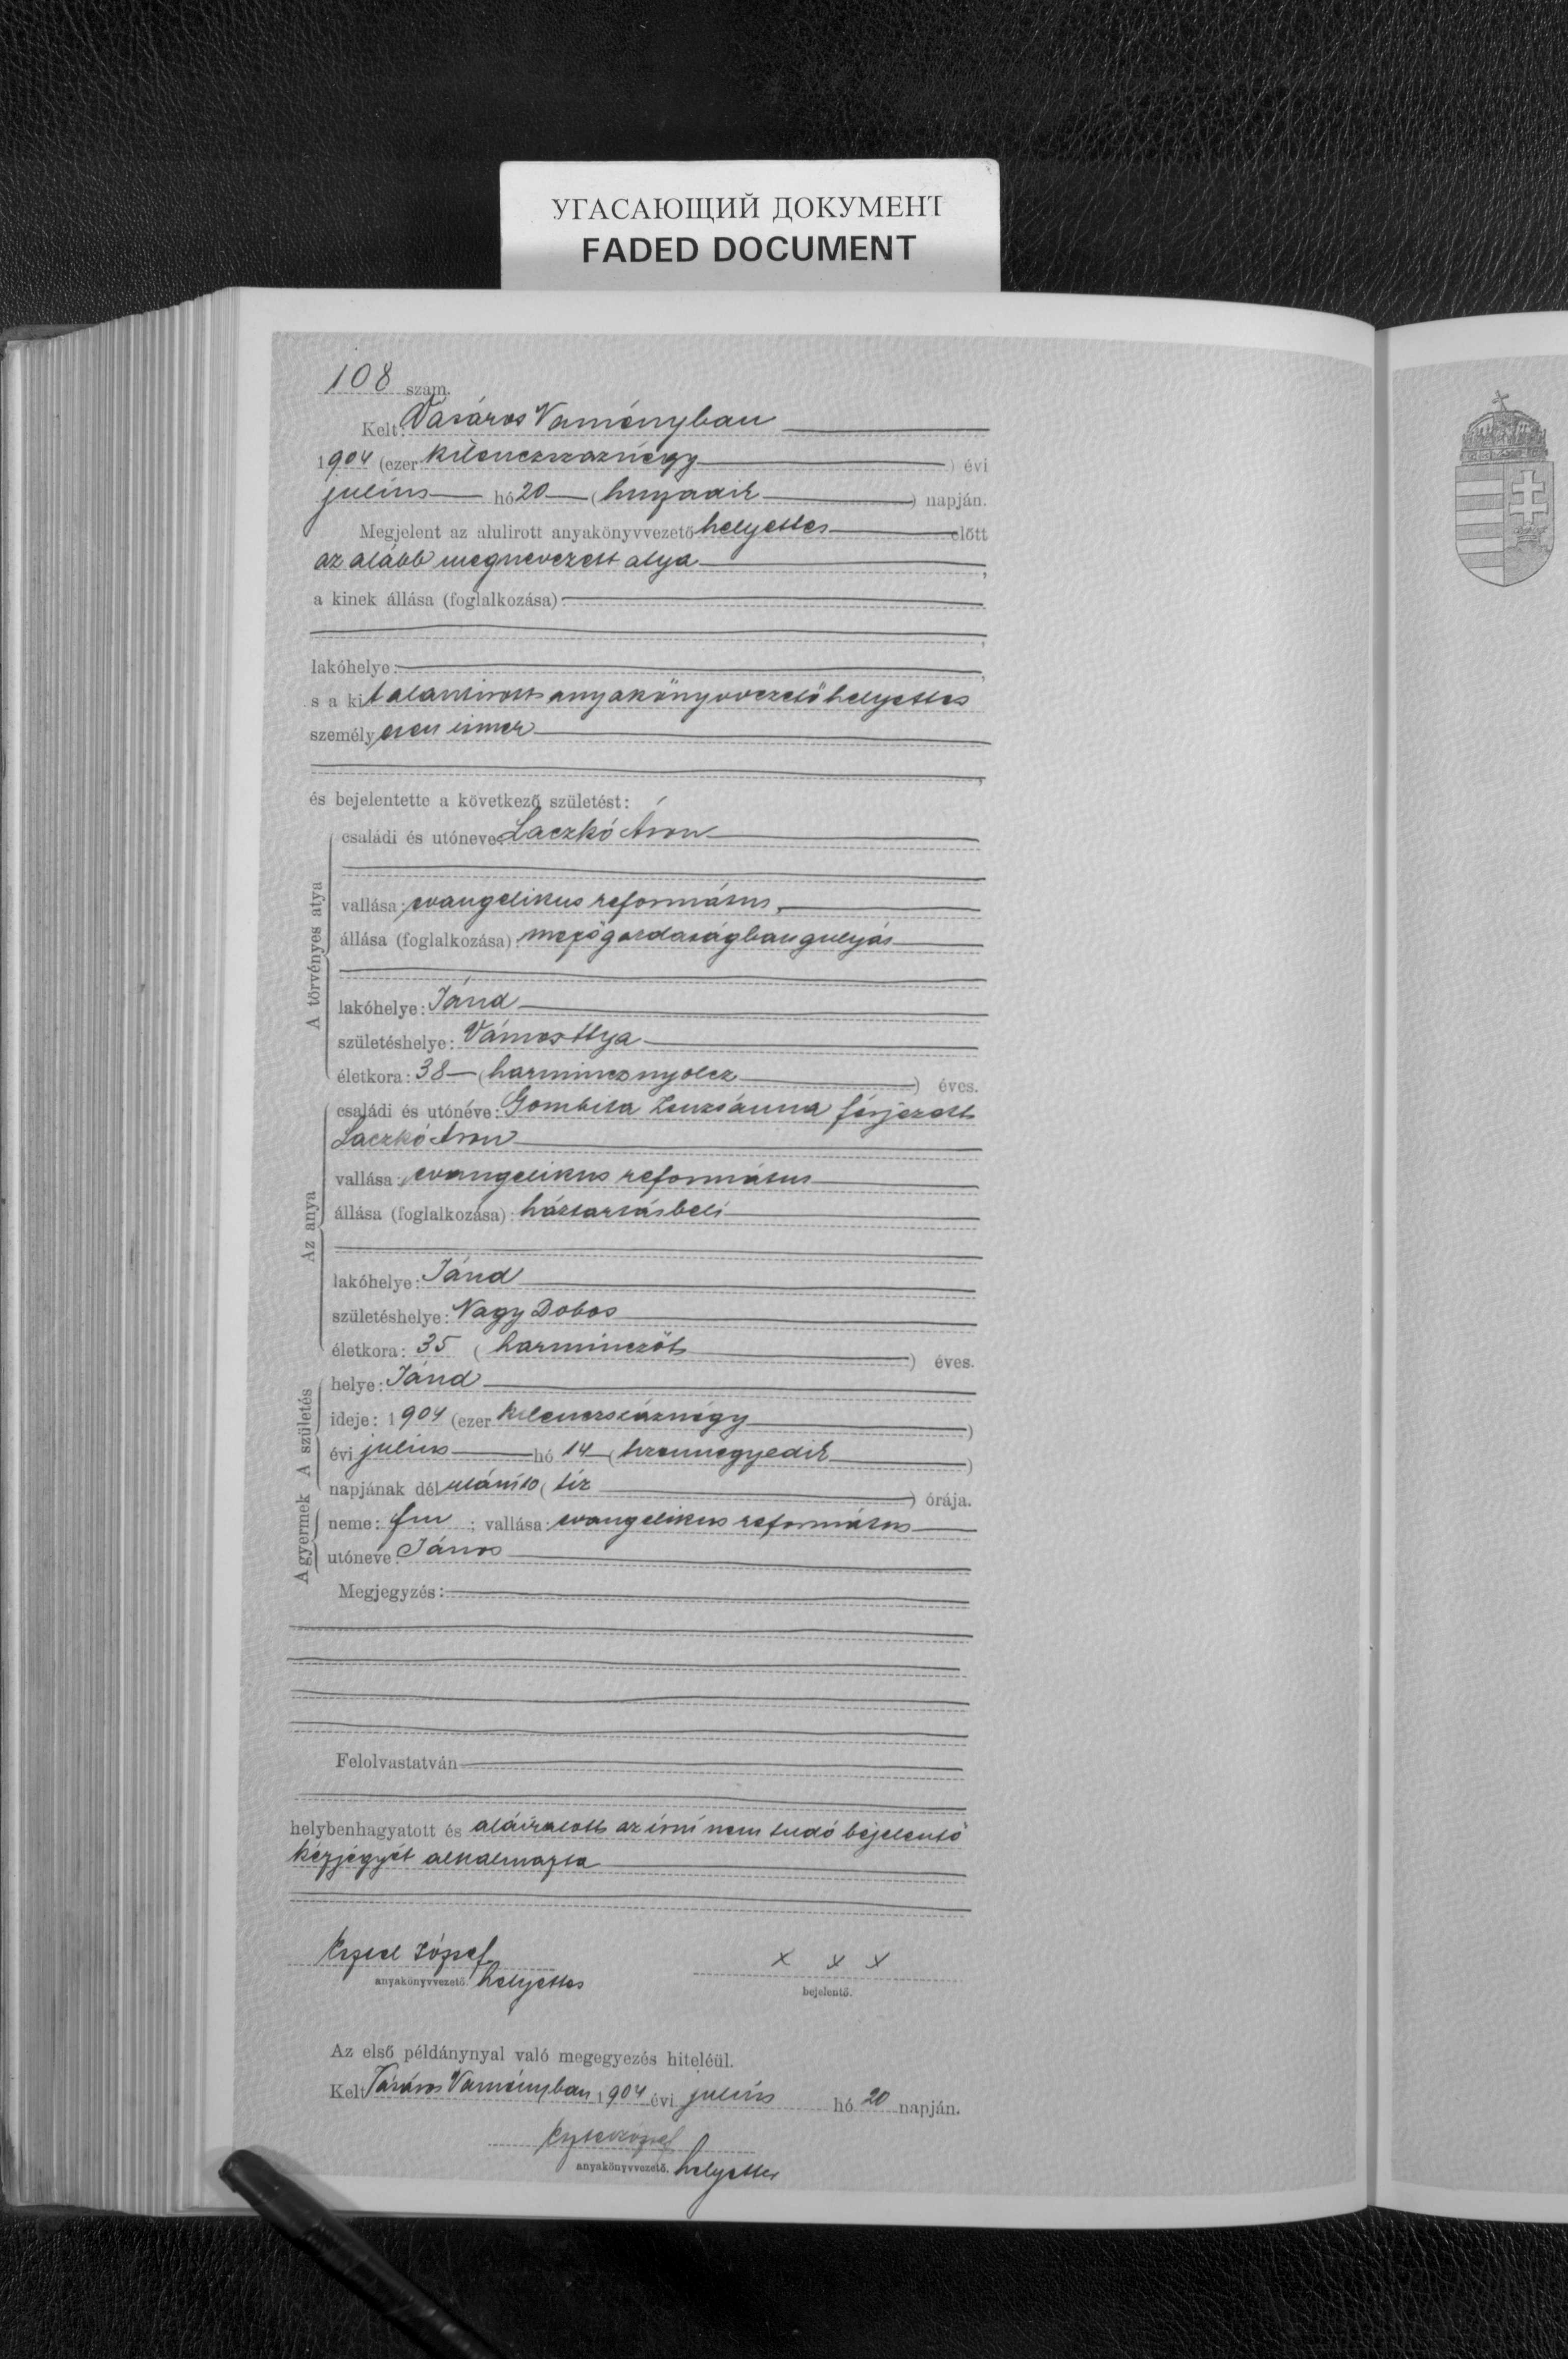 УГАСАЮЩИЙ ДОКУМЕНТ
FADED DOCUMENT
108 szám.
Kelt Vásáros Naményban
1904 (ezer kilenczszaznégy ) évi
julius hó 20 (huszadik ) napján.
Megjelent az alulirott anyakönyvvezető helyettes előtt
az alább megnevezett atya ,
a kinek állása (foglalkozása):
,
lakóhelye: ,
s a ki t alantirott anyakönyvvezető helyettes
személy esen ismer
,
és bejelentette a következő születést:
A törvényes atya
családi és utóneve: Laczkó Áron
vallása: evangelikus református
állása (foglalkozása): mezőgazdaságban gulyás
lakóhelye: Jánd
születéshelye: Vámos
életkora: 38 (harmincznyolcz ) éves.
Az anya
családi és utónéve: Gombita Zsuzsánna férjezett
Laczkó Áron
vallása: evangelikus református
állása (foglalkozása): háztartásbeli
lakóhelye: Jánd
születéshelye: Nagy Dobos
életkora: 35 (harminczöt ) éves.
A születés
helye: Jánd
ideje: 1904 (ezer kilenczszáznégy )
évi julius hó 14 (tizennegyedik )
napjának dél után 10 (tiz ) órája.
A gyermek
neme: fiu ; vallása: evangelikus református
utóneve: János
Megjegyzés:
Felolvastatván
helybenhagyatott és aláiratott az irni nem tudó bejelentő
kézjegyét alkalmazta
József x x x
anyakönyvvezető. helyettes bejelentő.
Az első példánynyal való megegyezés hiteléül.
Kelt Vásáros Naményban 1904 évi julius hó 20 napján.
József
anyakönyvvezető. helyettes